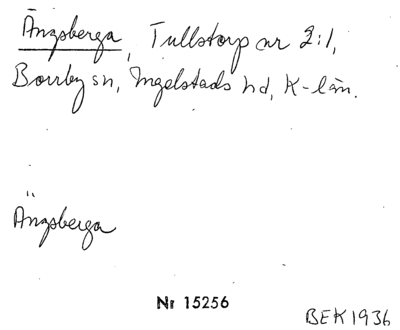 Ängsberga, Tullstorp nr 2:1,
Borrby sn, Ingelstads hd, K-län.
Ängsberga
Nr 15256
BEK 1936